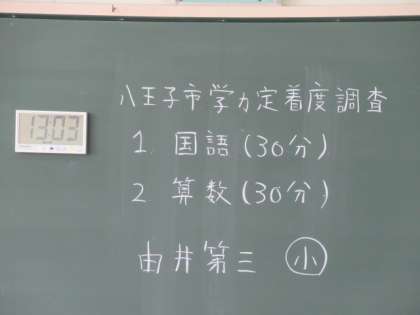 八王子市学力定着度調査
13:03
1 国語(30分)
2 算数(30分)
由井第三 小